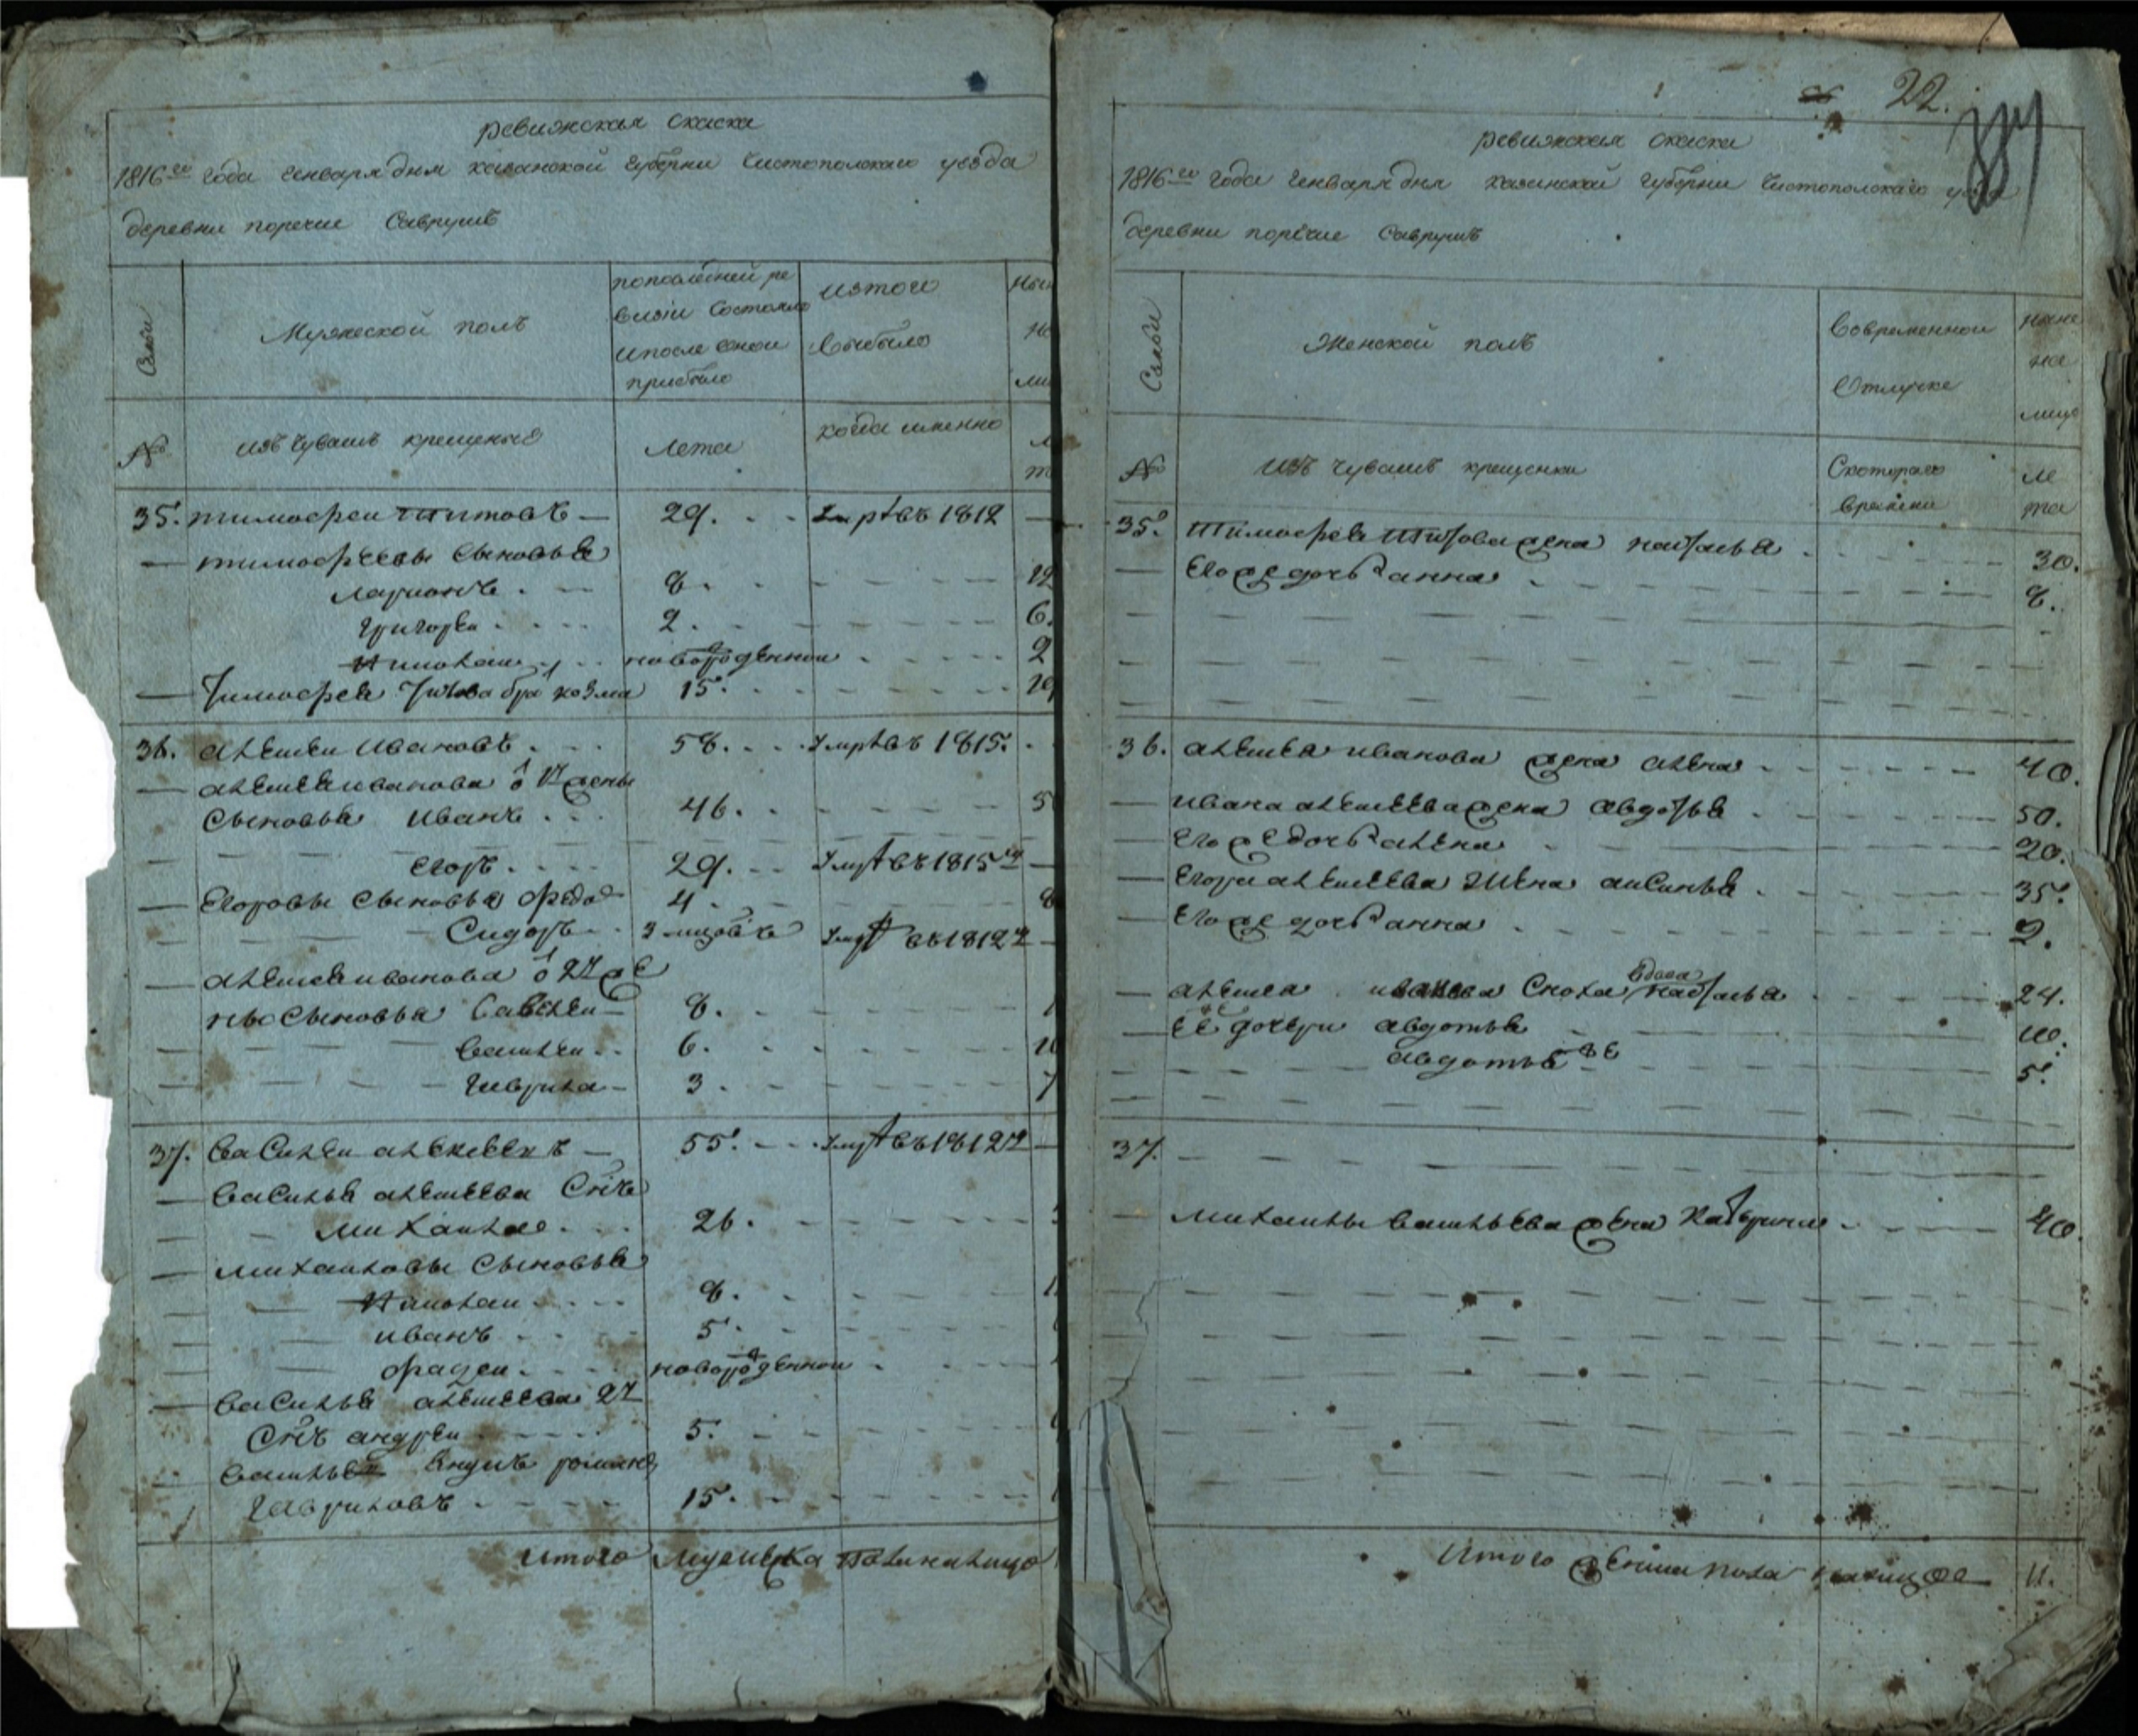 ревижская скаска
1816го года Генваря дня казанской губерни Чистополскаго уезда
деревни поречие Саврушъ
Семьи
Мужеской полъ
попоследней ре
визии состояло
ипосле оной
прибыло
изтого
выбыло
№
изъ чувашъ крещеные
Лета
когда имянно
35. тимофеи Титовъ — 29. умрѣ въ 1812
— тимофеевы сыновья
Ларионъ 8. 12
григореи 2. 6.
Николаи новорожденнои 2
— Тимофея Титова бра козма 15. 19
36. алексеи Ивановъ 58. умрѣ въ 1815.
— алексея иванова о 1й жены
сыновья иванъ 46. 5
егоръ 29. умре въ 1815го
— Егоровы сыновья федо 4 8
Сидоръ 3 умре въ 1812
— алексея иванова о 2й же
ны сыновья Савелеи 8.
василеи 6. 10
гаврила 3. 7
37. василеи алексеевъ — 55. умре въ 1812
— василья алексеева Снъ
михаило 26.
— михаиловы сыновья
Николаи 8.
иванъ 5.
фадеи новорожденнои
— василья алексеева 2й
Снъ андреи 5.
василья внукъ романъ
гавриловъ 15.
итого мужеска пола налицо
22.
ревижская скаска
1816го года Генваря дня казанской губерни Чистополскаго уезда
деревни поречие Саврушъ
Семьи
Женской полъ
Вовременной
Отлучке
ныне
на
лицо
№
изъ чувашъ крещенки
Скотораго
времени
ле
та
35. Тимофея Титова жена наталья 30.
— Его же дочь анна 8.
36. алексея иванова жена алена 40.
— ивана алексеева жена авдотья 50.
— Его же дочь алена 20.
— Егора алексеева жена аксинья 35.
— Его же дочь анна 2.
вдова
— алексея иванова Сноха наталья 24.
— Её дочери авдотья 10.
авдотья же 5.
37.
— михаилы васильева жена Катерина 40.
Итого женска пола налицо 11.